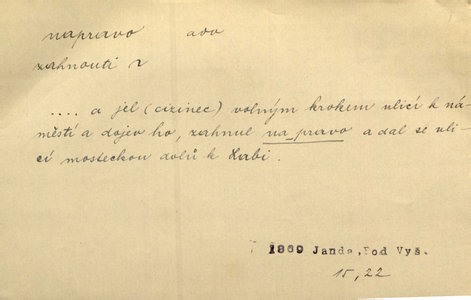 napravo adv
zahnouti 2
.... a jel (cizinec) volným krokem ulicí k ná-
městí a dojev ho, zahnul na_pravo a dal se uli
cí mosteckou dolů k Labi.
1869 Janda, Pod Vyš.
15, 22